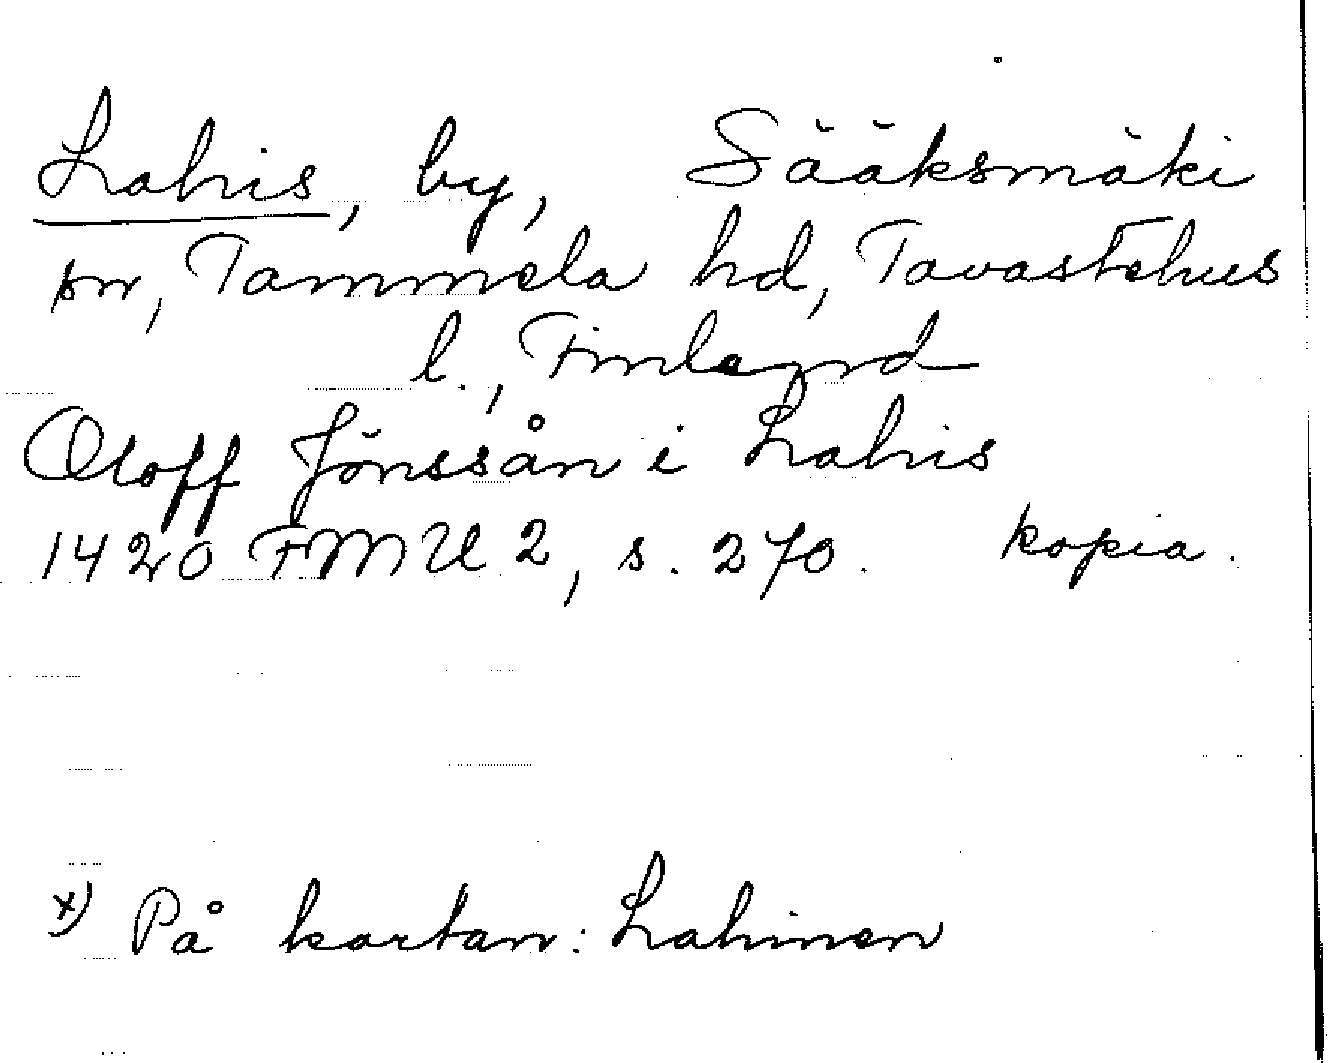 Lahis, by, Sääksmäki
sn, Tammela hd, Tavastehus
l., Finland
Oloff Jönssån i Lahis
1420 FMU 2, s. 270. kopia.
x) På kartan: Lahinen